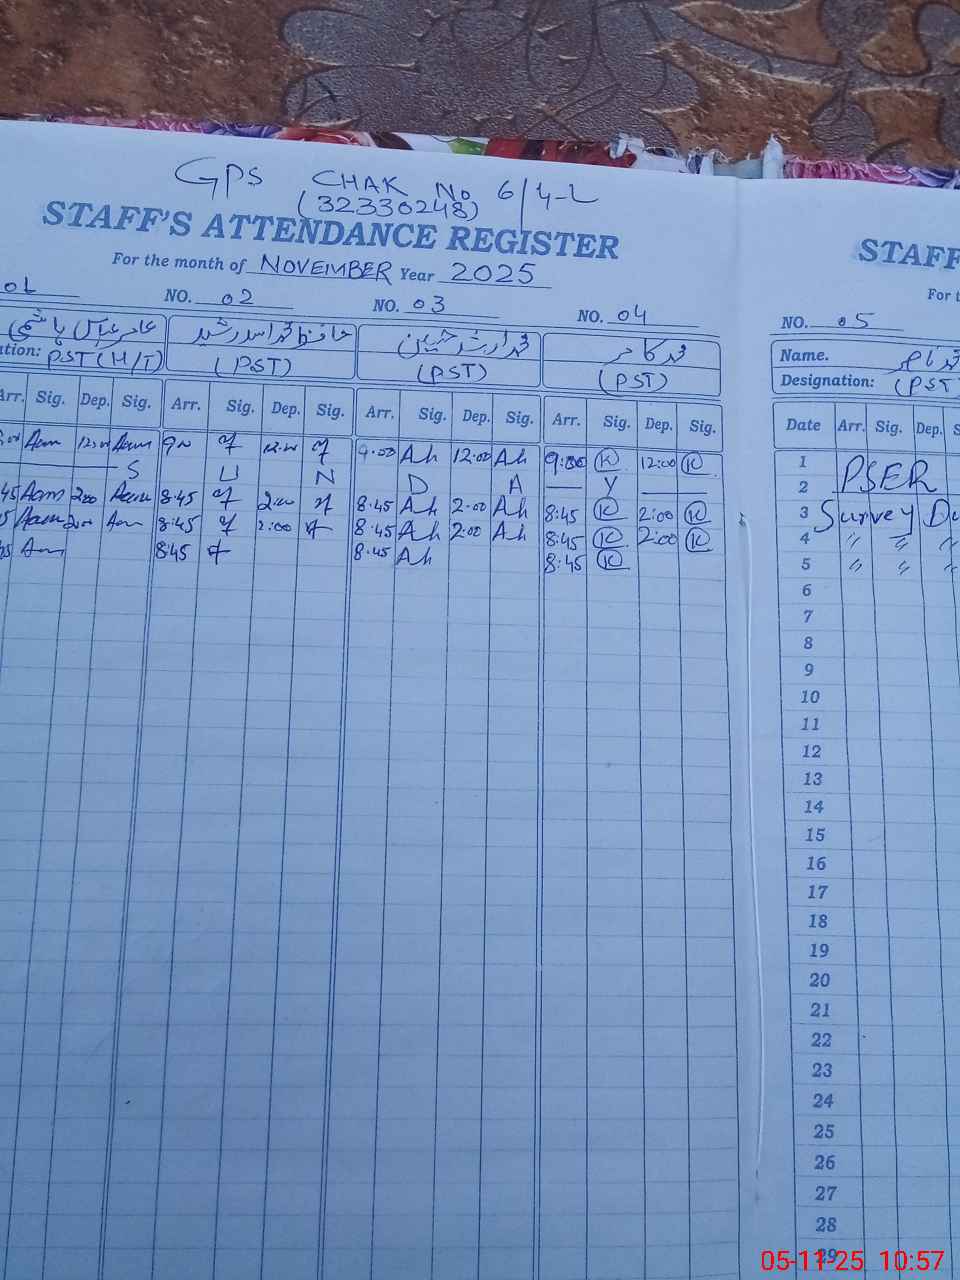 GPS CHAK No 6/4-L
(32330248)
STAFF'S ATTENDANCE REGISTER
For the month of NOVEMBER Year 2025
01 NO. 02 NO. 03 NO. 04
PST (H/T) (PST) (PST) (PST)
Arr. Sig. Dep. Sig. Arr. Sig. Dep. Sig. Arr. Sig. Dep. Sig. Arr. Sig. Dep. Sig.
9.00 Ah 12:00 Ah 9:00 K 12:00 K
S U N D A Y
45 Aam 2:00 Aam 8:45 2:00 8.45 Ah 2.00 Ah 8:45 K 2:00 K
Aam 2:00 Aam 8:45 2:00 8.45 Ah 2:00 Ah 8:45 K 2:00 K
Aam 8:45 8.45 Ah 8:45 K
STAFF
For t
NO. 05
Name. محمد
Designation: (PST
Date Arr. Sig. Dep. S
1 PSER
2
3 Survey Du
4 〃 〃 〃
5 〃 〃 〃
6
7
8
9
10
11
12
13
14
15
16
17
18
19
20
21
22
23
24
25
26
27
28
29
05-11-25 10:57